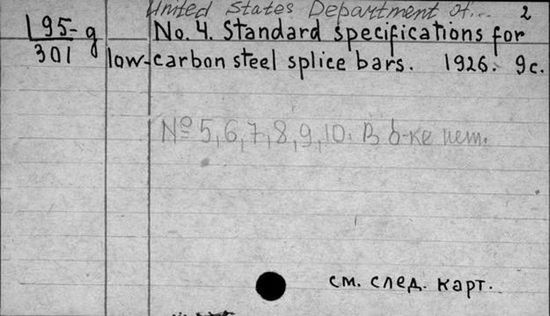 United States Department of... 2
L95-g
301
No. 4. Standard specifications for
low-carbon steel splice bars. 1926. 9c.
№ 5, 6, 7, 8, 9, 10. В б-ке нет.
см. след. карт.